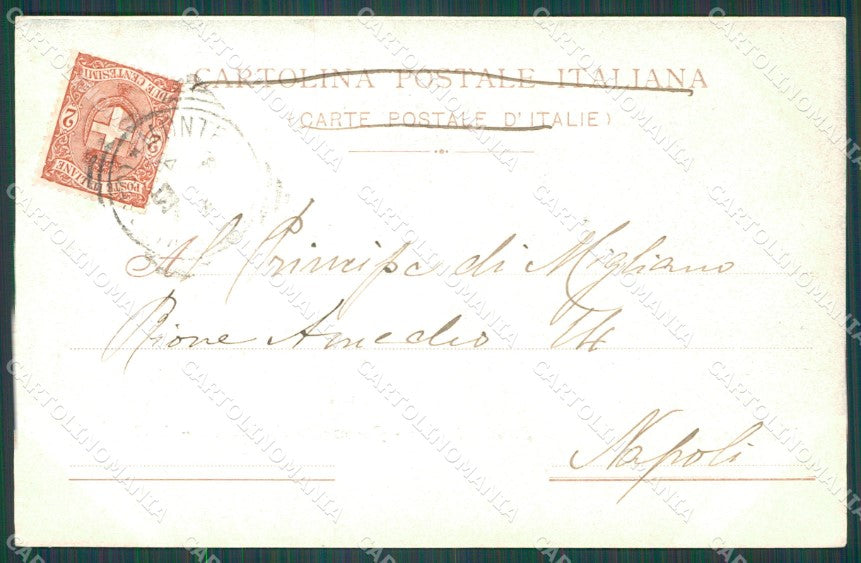 CARTOLINA POSTALE ITALIANA
(CARTE POSTALE D'ITALIE)
POSTE ITALIANE
2 2
DUE CENTESIMI
Al Principe di Migliano
Rione Amedeo 74
Napoli
CARTOLINOMANIA